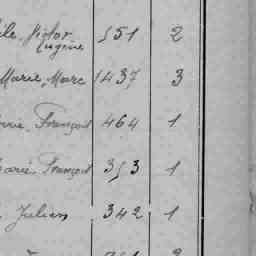 Victor 551 2
Eugène
Marie, Marc 1437 3
François 464 1
Marie François 353 1
Julien 342 1